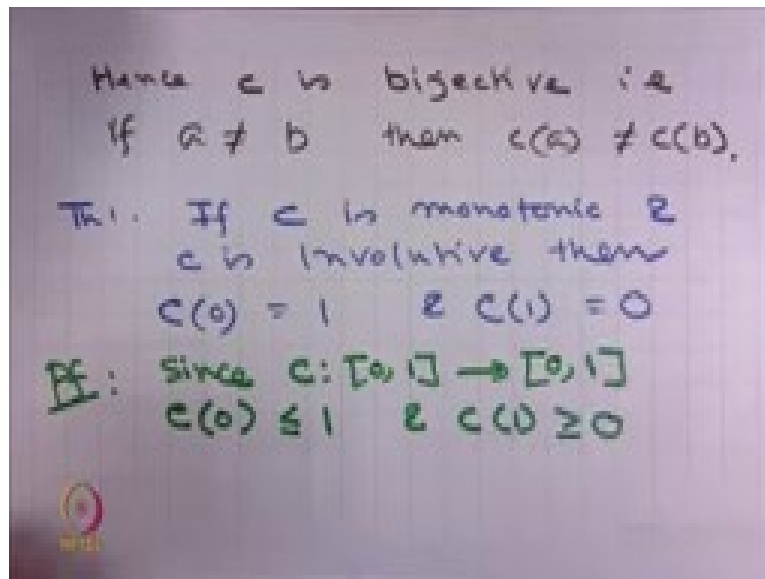 Hence c is bijective ie
if a ≠ b then c(a) ≠ c(b).
Th 1. If c is monotonic &
c is involutive then
c(0) = 1 & c(1) = 0
Pf: Since c: [0, 1] → [0, 1]
c(0) ≤ 1 & c(1) ≥ 0